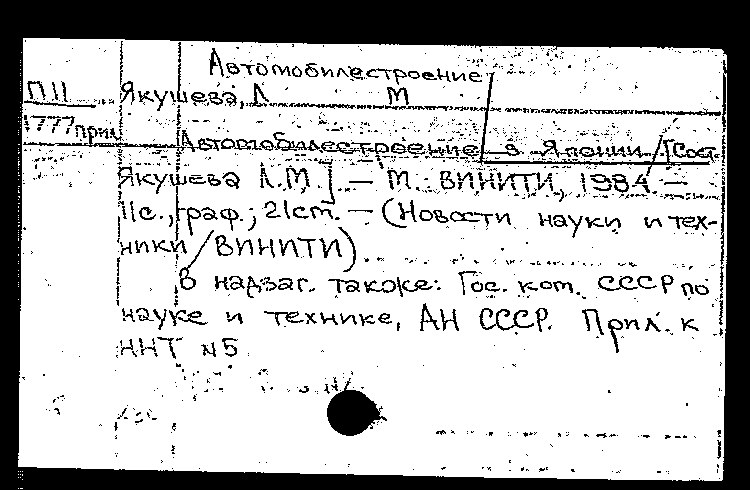 Автомобилестроение
П11 Якушева, Л М
1777прил
Автомобилестроение в Японии /[Сост.
Якушева Л.М.]. — М.: ВИНИТИ, 1984. —
11с., граф.; 21см. — (Новости науки и тех-
ники / ВИНИТИ).
В надзаг. также: Гос. ком. СССР по
науке и технике, АН СССР. Прил. к
ННТ N5